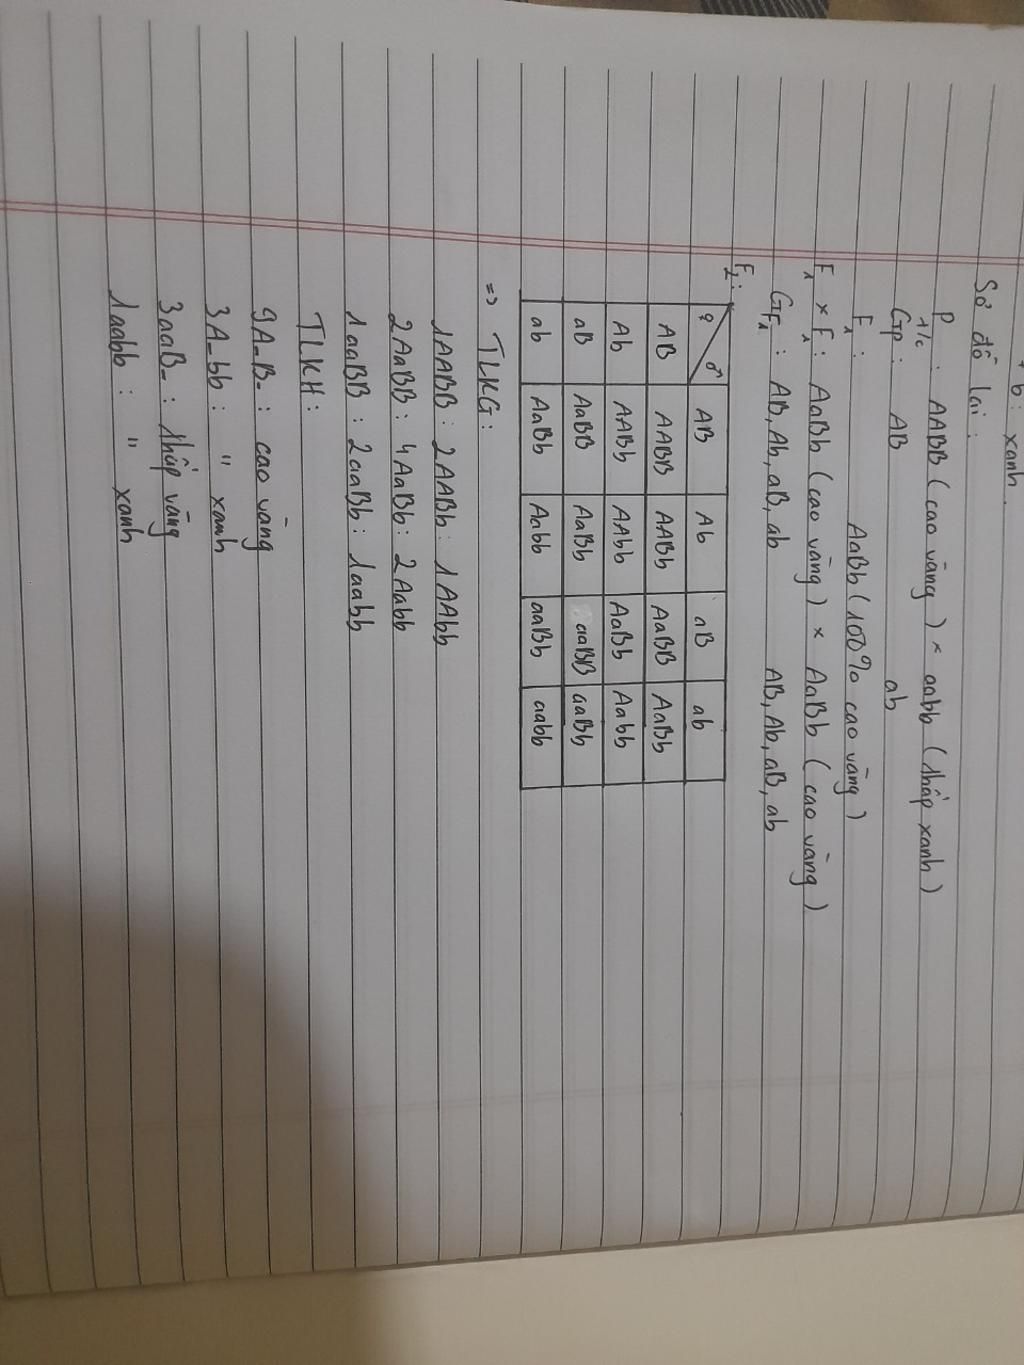 b: xanh.
Sơ đồ lai:
P t/c : AABB (cao vàng) × aabb (thấp xanh)
Gp: AB ab
F1: AaBb (100% cao vàng)
F1 × F1: AaBb (cao vàng) × AaBb (cao vàng)
GF1: AB, Ab, aB, ab AB, Ab, aB, ab
F2:
♀ ♂ AB Ab aB ab
AB AABB AABb AaBB AaBb
Ab AABb AAbb AaBb Aabb
aB AaBB AaBb aaBB aaBb
ab AaBb Aabb aaBb aabb
=> TLKG:
1AABB : 2AABb : 1AAbb
2AaBB : 4AaBb : 2Aabb
1aaBB : 2aaBb : 1aabb
TLKH:
9A-B- : cao vàng
3A-bb : " xanh
3aaB- : thấp vàng
1aabb : " xanh